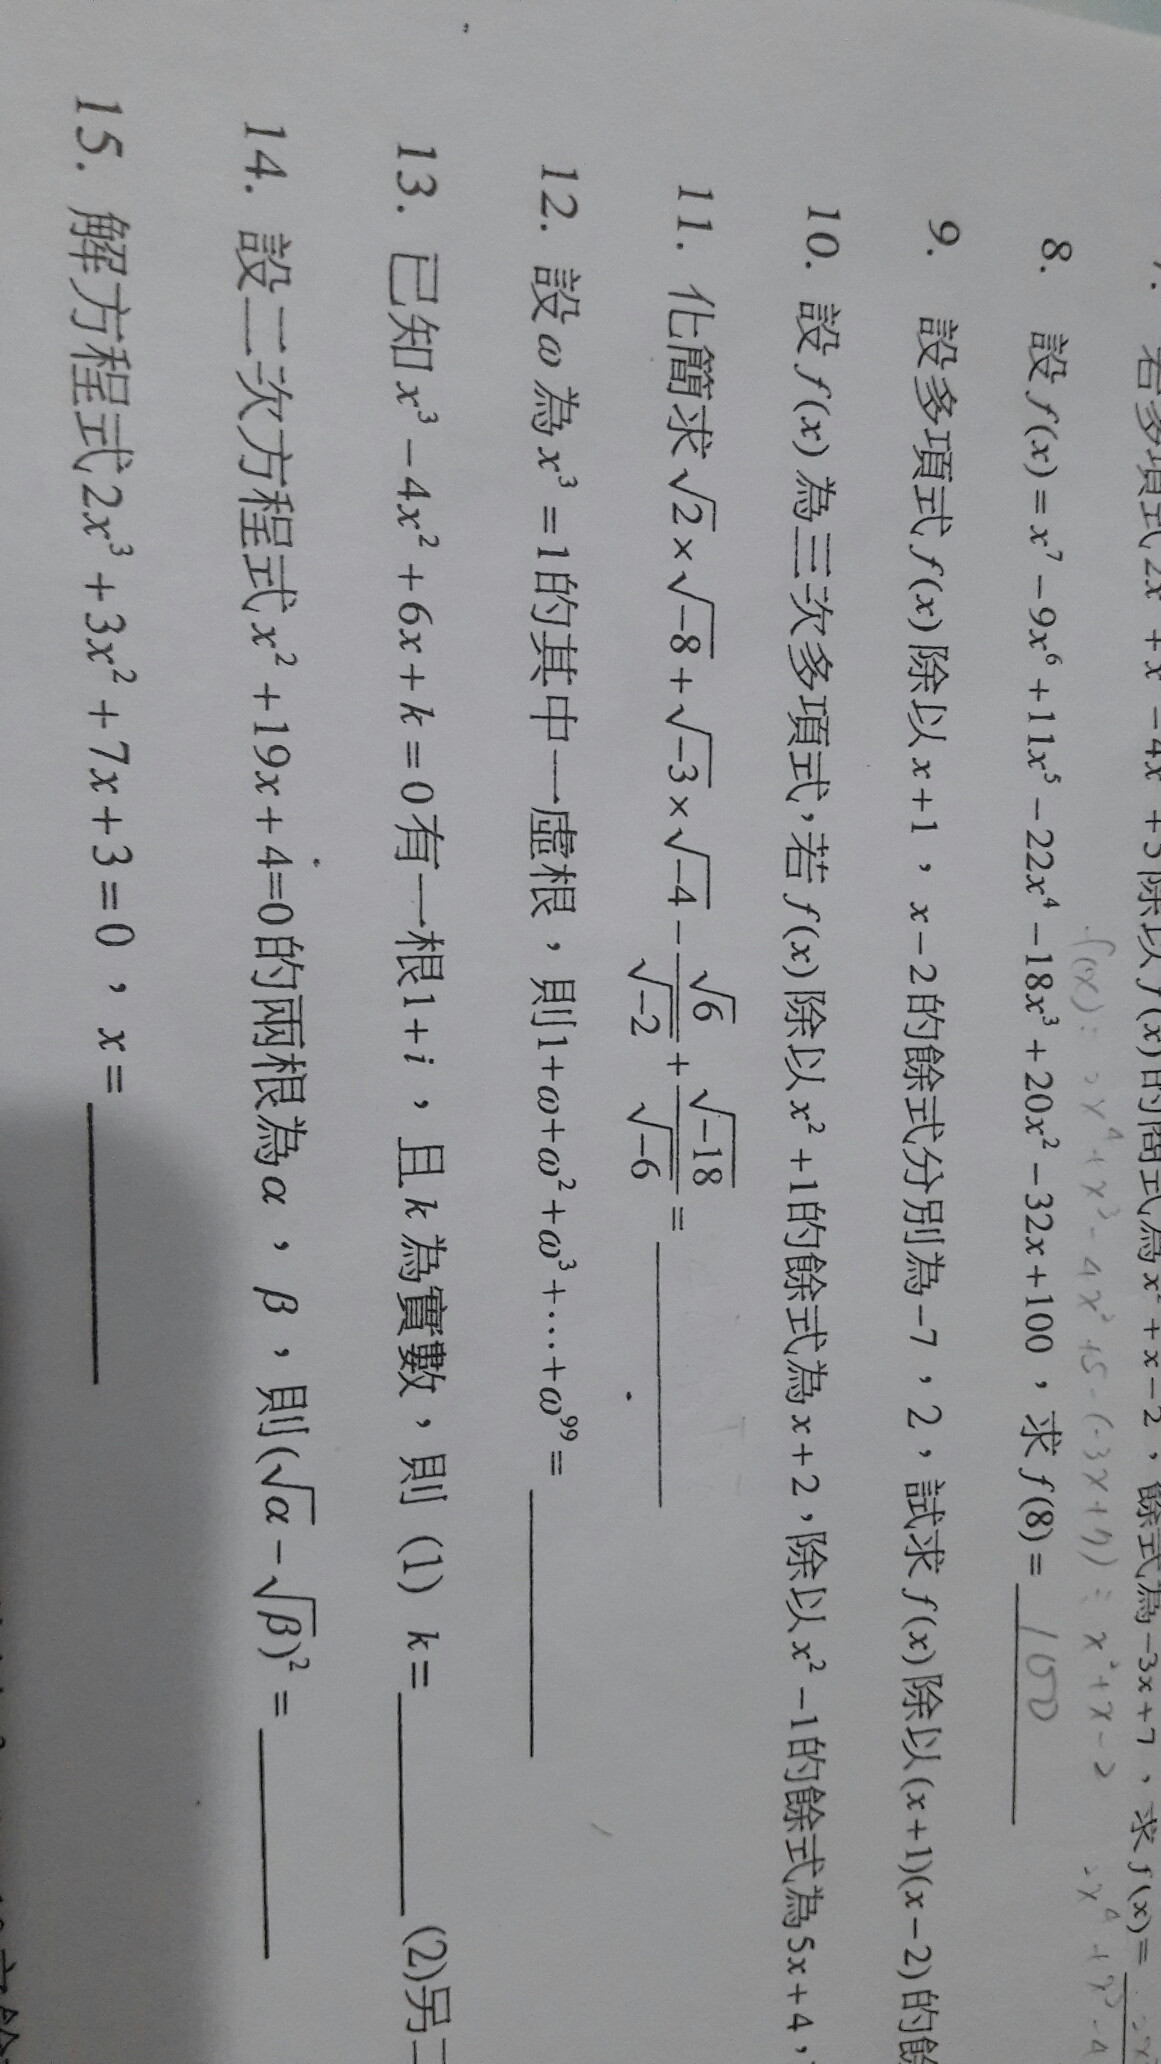 若多項式2x + x - 4x + 5除以f(x)的商式為x² + x - 2，餘式為-3x+7，求f(x)=
f(x) = 2x⁴ + x³ - 4x² + 5 - (-3x+7) ÷ x² + x - 2
8. 設f(x) = x⁷ - 9x⁶ + 11x⁵ - 22x⁴ - 18x³ + 20x² - 32x + 100，求f(8) = 100
9. 設多項式f(x)除以x+1，x-2的餘式分別為-7，2，試求f(x)除以(x+1)(x-2)的餘
10. 設f(x)為三次多項式，若f(x)除以x²+1的餘式為x+2，除以x²-1的餘式為5x+4，
11. 化簡求√2×√-8+√-3×√-4-√6/√-2+√-18/√-6=
12. 設ω為x³=1的其中一虛根，則1+ω+ω²+ω³+…+ω⁹⁹=
13. 已知x³-4x²+6x+k=0有一根1+i，且k為實數，則 (1) k= (2)另
14. 設二次方程式x²+19x+4=0的兩根為α，β，則(√α-√β)²=
15. 解方程式2x³+3x²+7x+3=0，x=